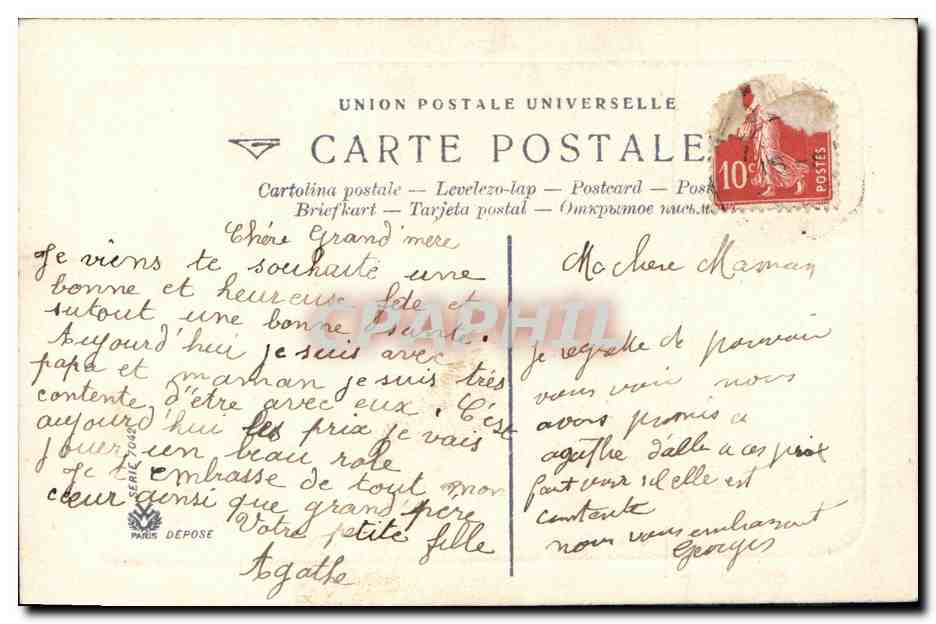 UNION POSTALE UNIVERSELLE
CARTE POSTALE
Cartolina postale — Levelezo-lap — Postcard — Post
Briefkart — Tarjeta postal — Открытое письм
10c
POSTES
Chère Grand'mère
Je viens te souhaité une
bonne et heureuse fête et
surtout une bonne santé.
Aujourd'hui je suis avec
papa et maman je suis très
contente d'être avec eux. C'est
aujourd'hui les prix je vais
jouer un beau role
Je t'embrasse de tout mon
cœur ainsi que grand père
Votre petite fille
Agathe
SERIE 7042
PARIS
DÉPOSÉ
Ma chere Maman
je regrette de pouvoir
vous voir nous
avons promis a
agathe d'alle a ces prix
faut voir si elle est
contente
nous vous embrassont
Georges
CPAPHIL